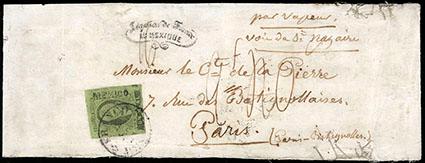 Légation de France
AU MEXIQUE
par vapeur
voie de St Nazaire
Monsieur le Cte de la Pierre
MEXICO
7. Rue des Batignollaises
Paris. (Paris-Batignolles)